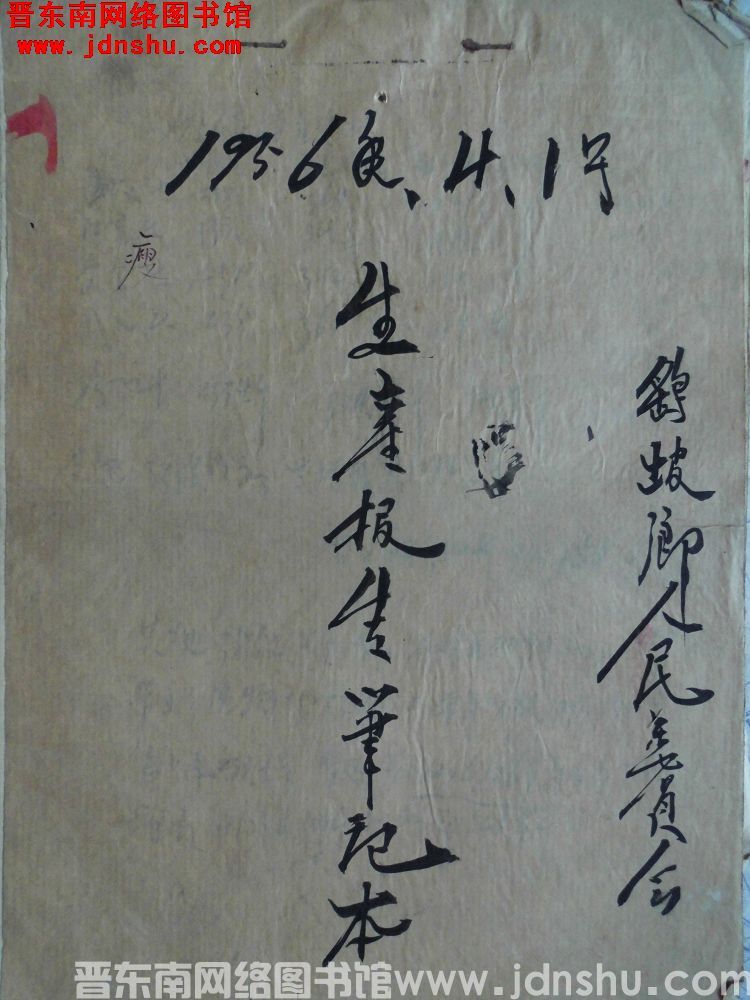 晋东南网络图书馆
www.jdnshu.com
1956年、4、1号
瘦
生產报告筆记本
鄉人民委員会
晋东南网络图书馆www.jdnshu.com